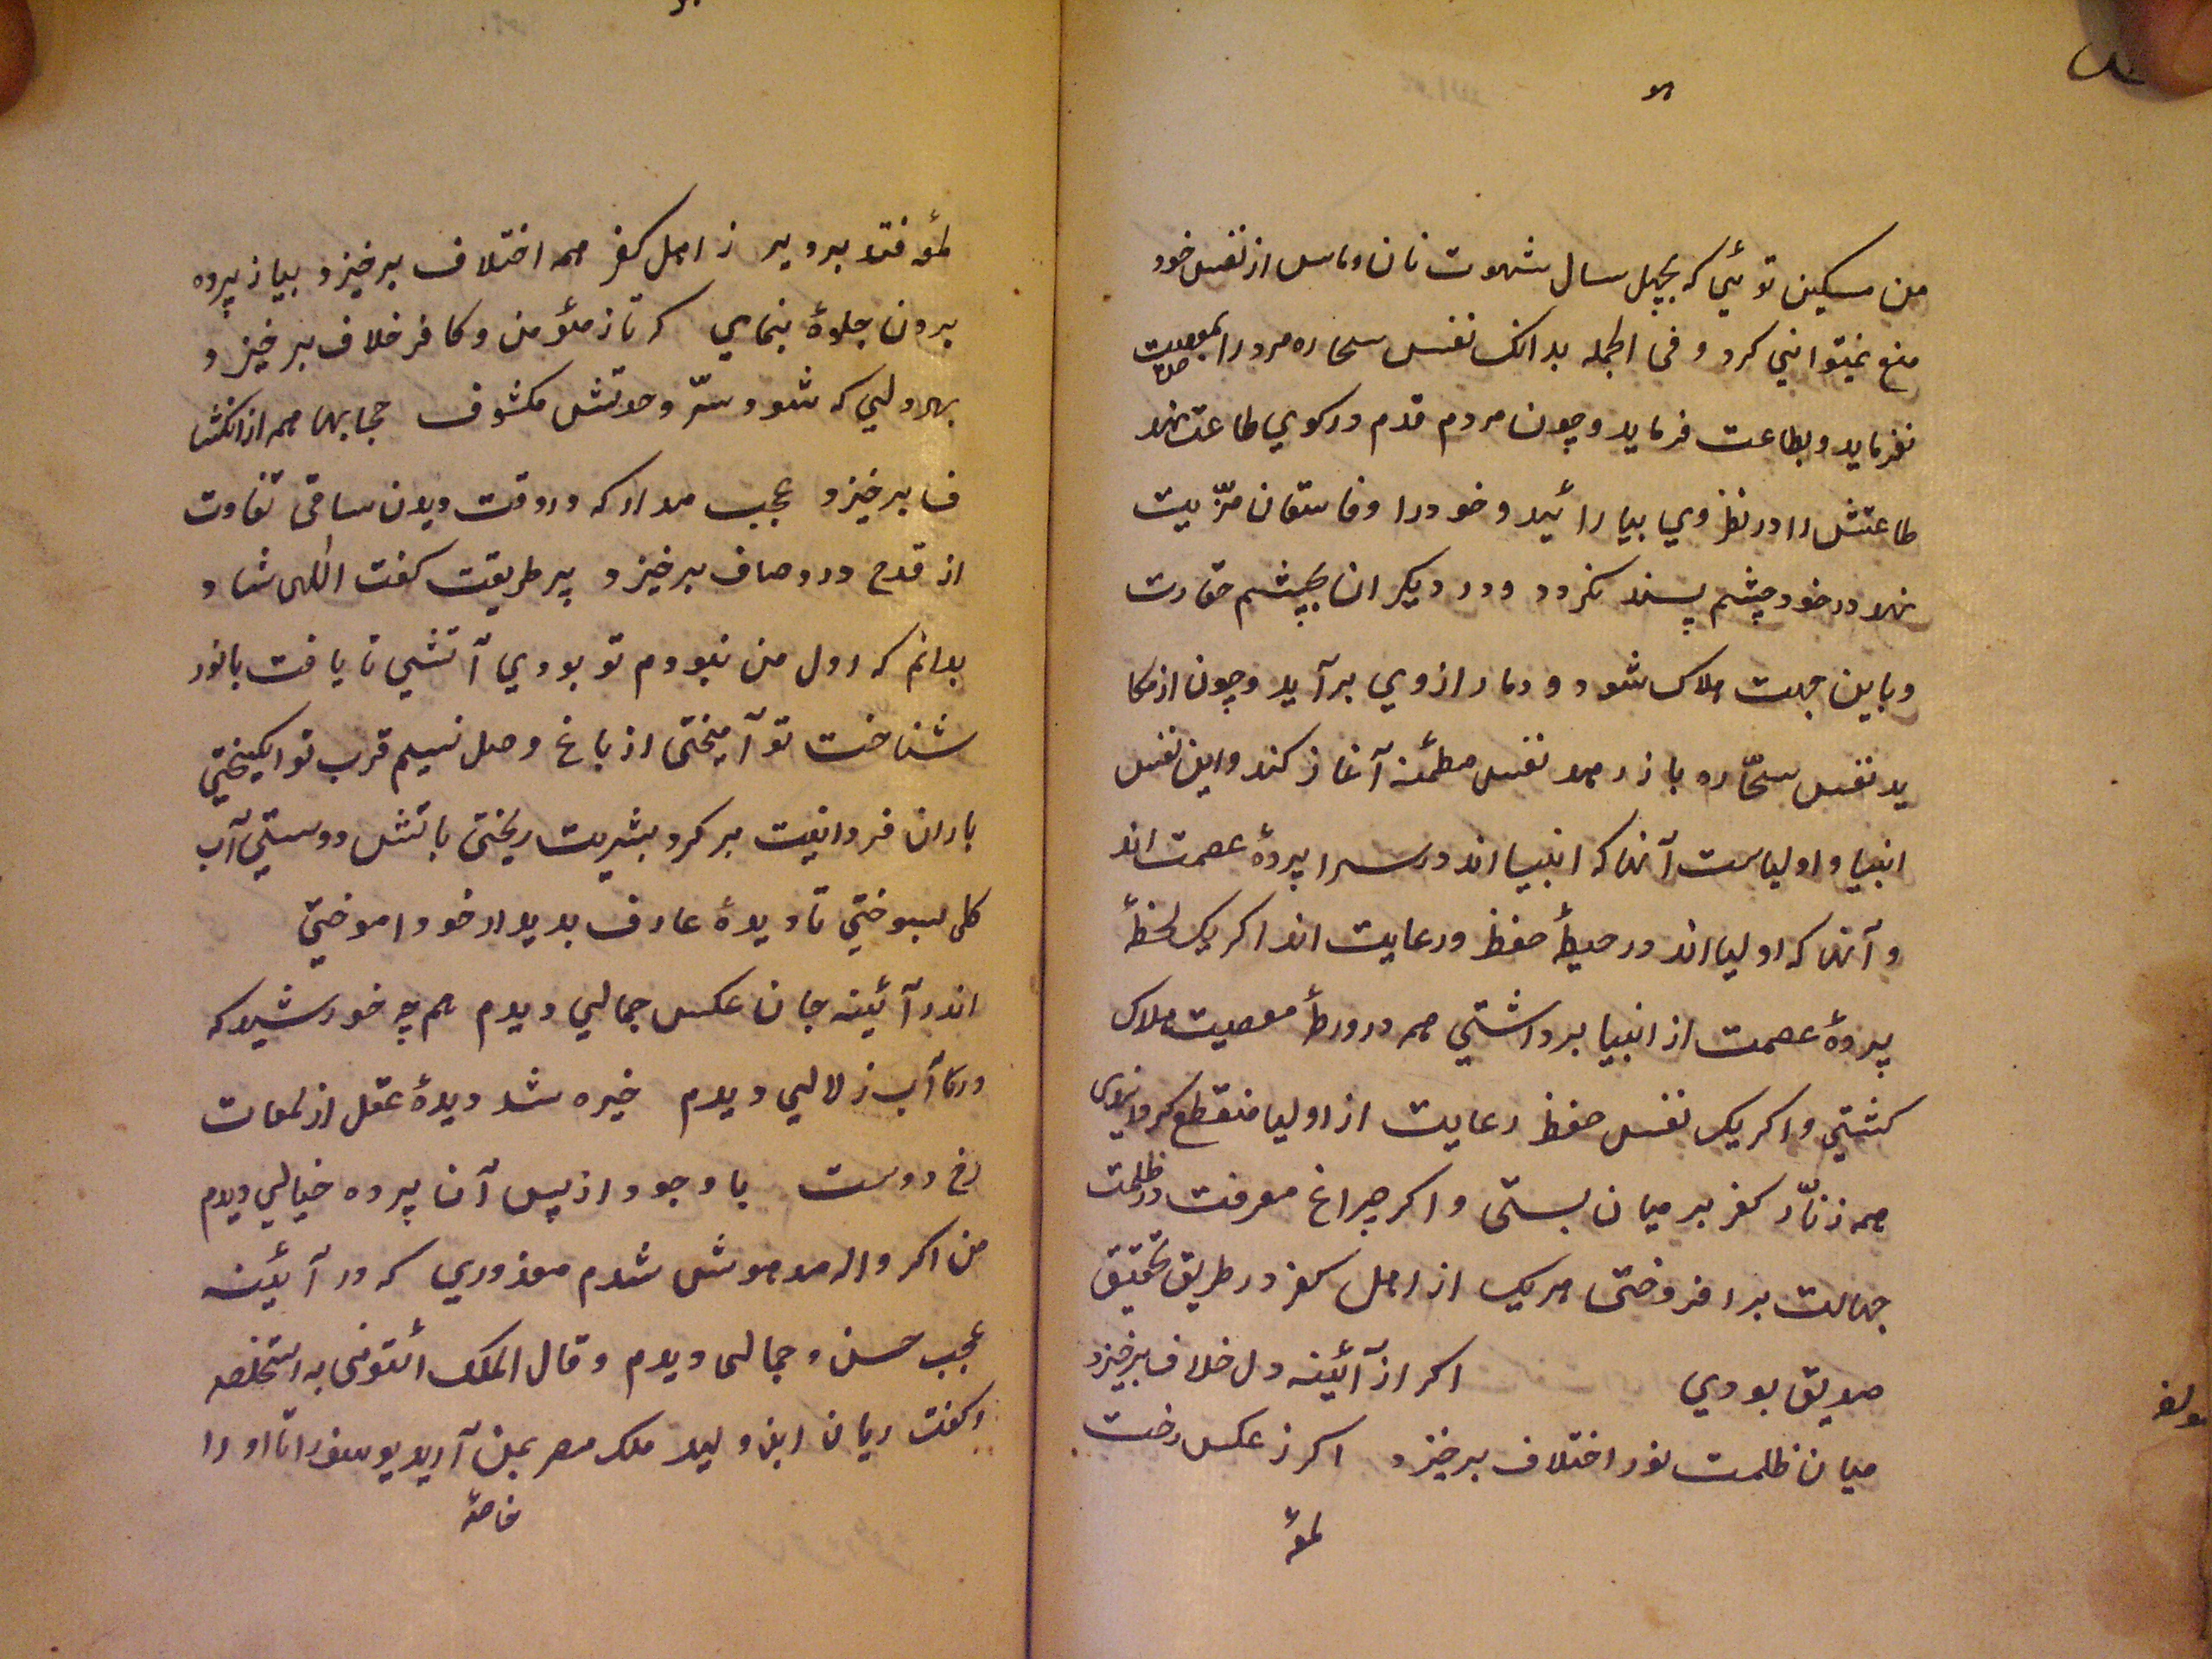 من مسکین توئی که بچهل سال شهوت نان وماس از نفس خود
منع نمیتوانی کرد وفی الجمله بدانک نفس سحاره مرد را بمعصیت
نفرماید وبطاعت فرماید وچون مردم قدم در کوی طاعت نهد
طاعتش را در نظر وی بیاراید وخود را وفاسقان مزیت
نهد در خود بچشم پسند نکرد ودر دیکران بچشم حقارت
وباین جهت هلاک شود ودمار از وی برآید وچون از مکا
ید نفس سحّاره باز رهد نفس مطمئنه آغاز کند واین نفس
انبیا واولیاست آنها که انبیااند در سراپردهٔ عصمت اند
وآنها که اولیااند در حیطهٔ حفظ ورعایت اند اکر یک لحظهٔ
پردهٔ عصمت از انبیا برداشتی همه در ورطهٔ معصیت هلاک
کشتی واکر یک نفس حفظ رعایت از اولیا منقطع کردانیدی
همه زنّار کفر بر میان بستی واکر چراغ معرفت در ظلمت
جهالت برافروختی هریک از اهل کفر در طریق تحقیق
صدیق بودی اکر از آئینه دل خلاف برخیزد
میان ظلمت نور اختلاف برخیزد اکر ز عکس رخت
لمعهٔ
لمعهٔ فتد بر دیر ز اهل کفر همه اختلاف برخیزد بیا ز پرده
برون جلوهٔ بنمای که تا ز مؤمن وکافر خلاف برخیزد
بهر دلی که شود سرّ وحدتش مکشوف حجابها همه از انکشا
ف برخیزد عجب مدار که در وقت دیدن ساقی تفاوت
از قدح درد وصاف برخیزد پیر طریقت کفت الهی شاد
بدانم که اول من نبودم تو بودی آتشی تا یافت بانور
شناخت تو آمیختی از باغ وصل نسیم قرب تو انکیختی
باران فردانیت بر کرد بشریت ریختی باتش دوستی آب
کل بسوختی تا دیدهٔ عارف بدیدار خود اموختی
اندر آئینه جان عکس جمالی دیدم همچو خورشید که
در آب زلالی دیدم خیره شد دیدهٔ عقل از لمعات
رخ دوست با وجود از پس آن پرده خیالی دیدم
من اکر واله مدهوش شدم معذوری که در آئینه
عجب حسن وجمالی دیدم وقال الملک ائتونی به استخلصه
وکفت ریان ابن ولید ملک مصر بمن آرید یوسف را تا او را
خاصهٔ